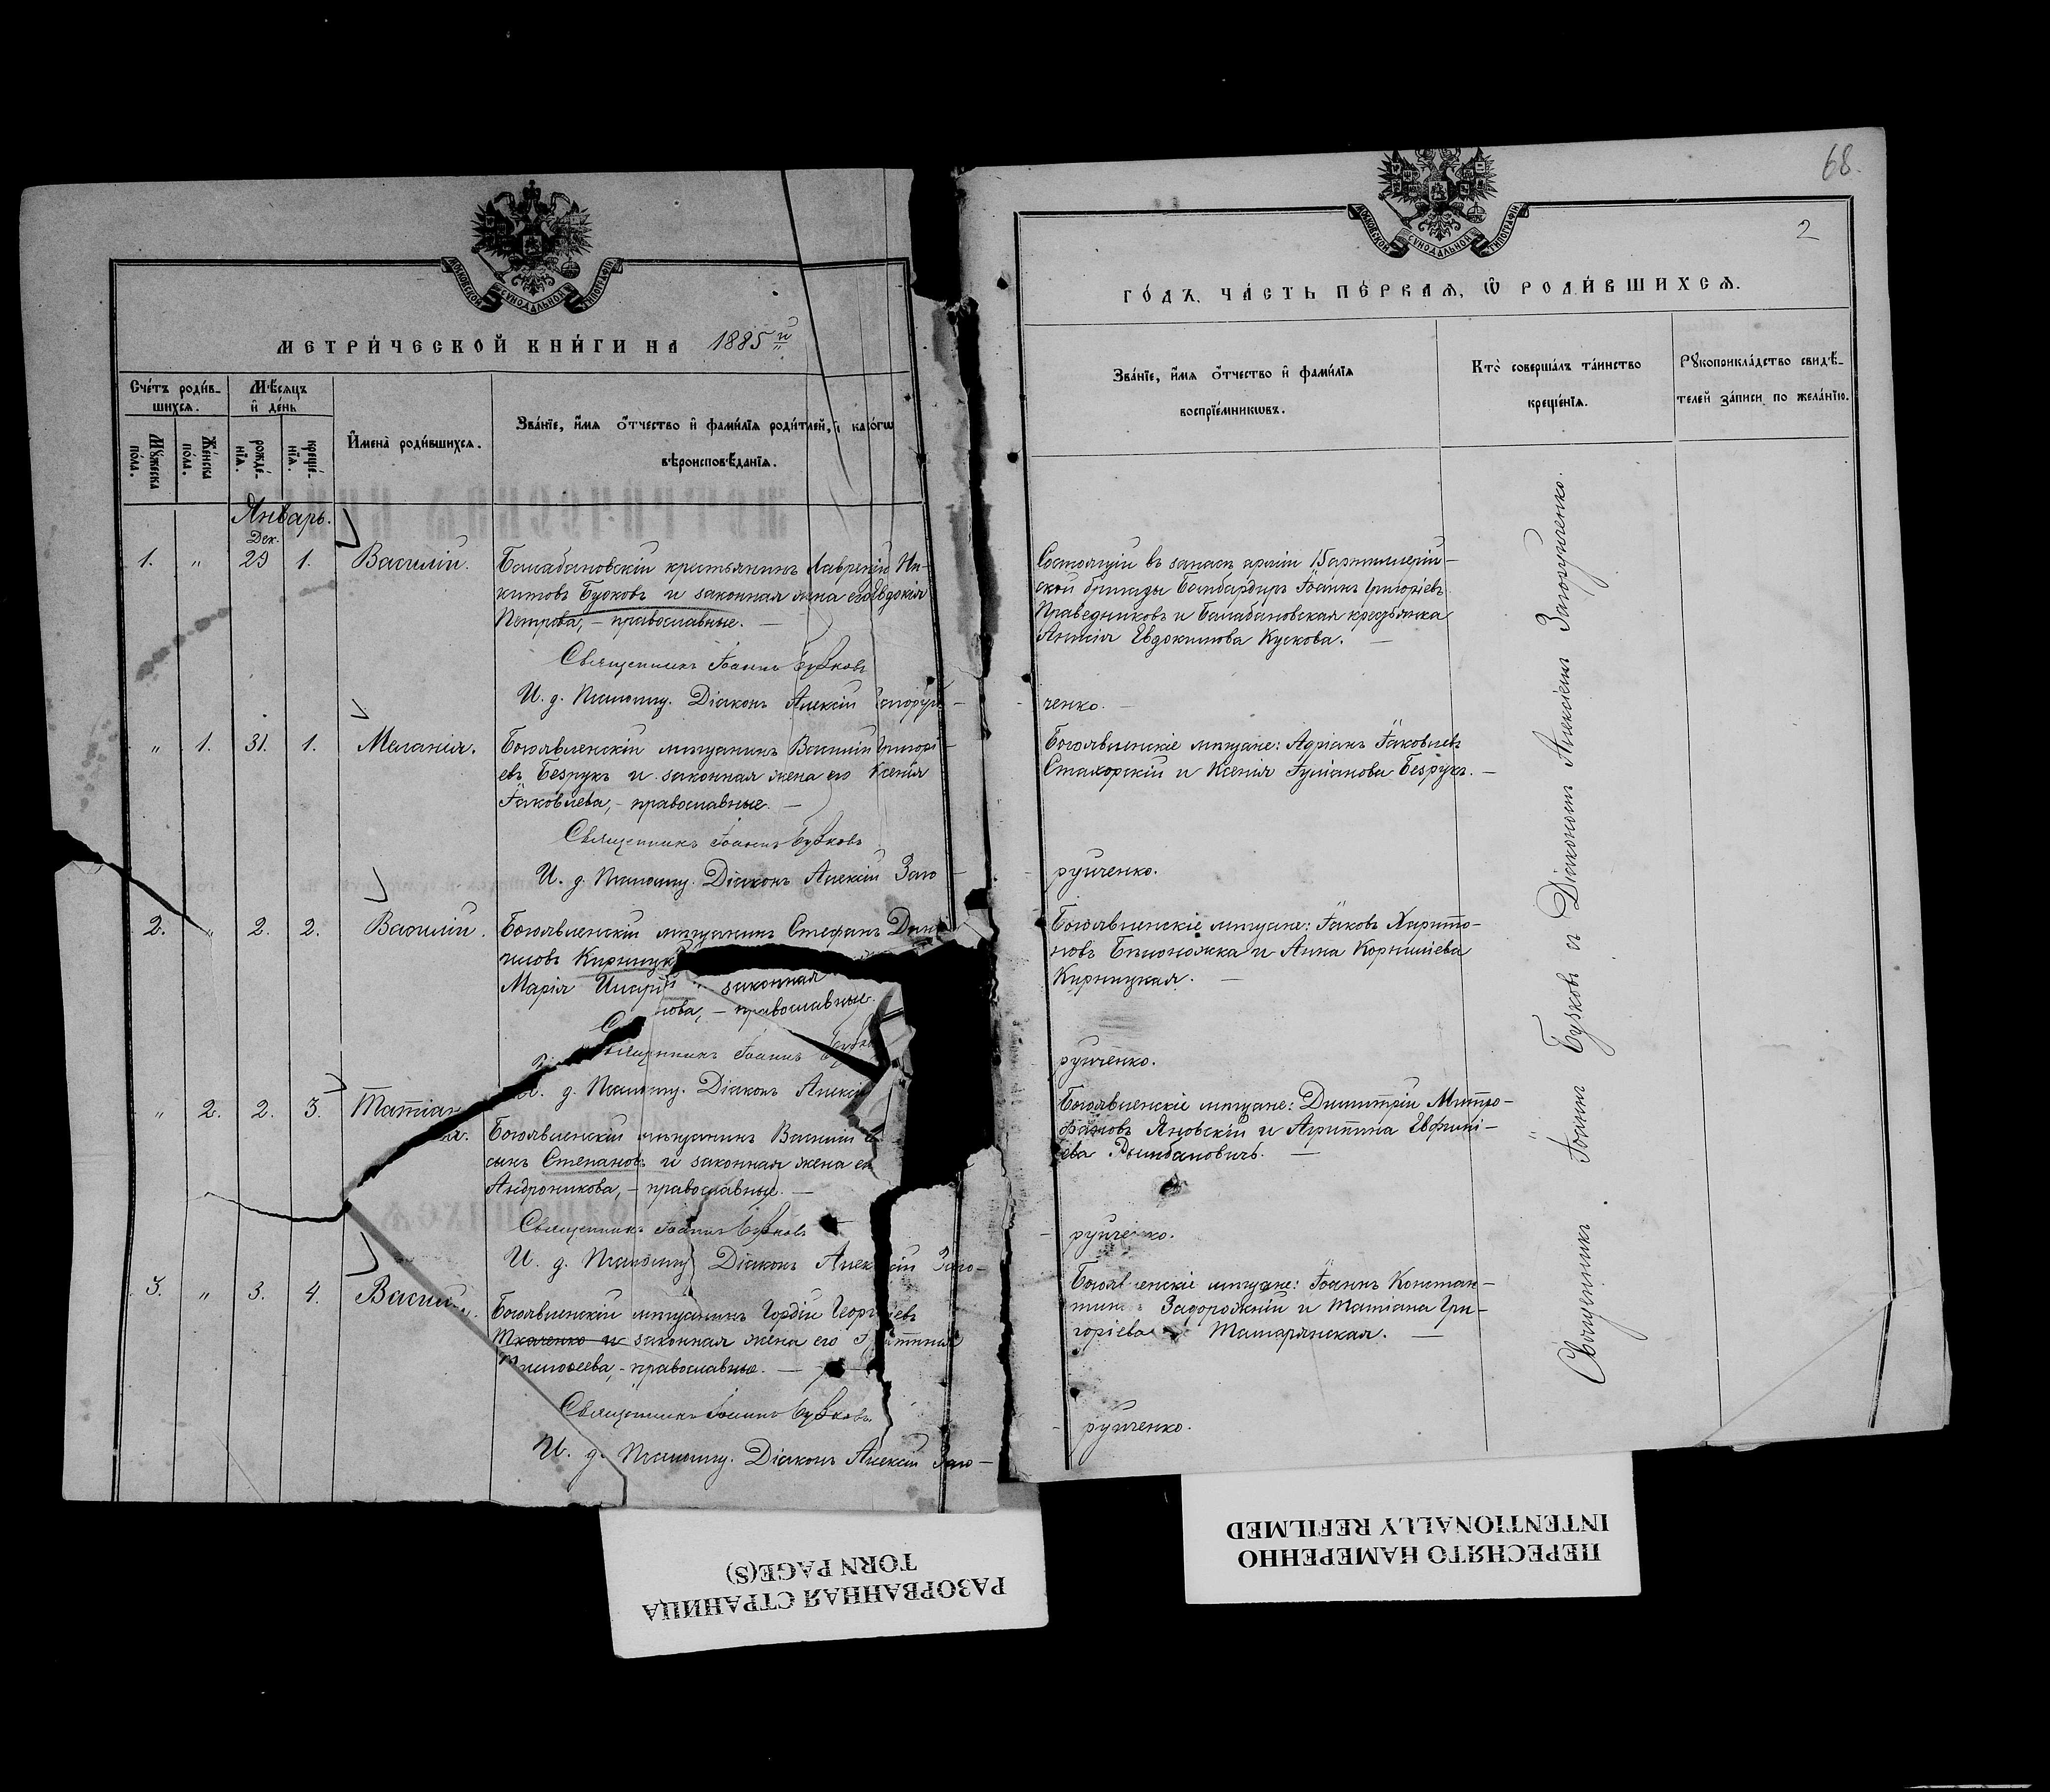 МОСКОВСКОЙ СѴНОДАЛЬНОЙ ТИПОГРАФІИ
МЕТРИ́ЧЕСКОЙ КНИ́ГИ НА 1885 й
Сче́тъ роди́в-
шихсѧ.
Мѣ́сѧцъ
и҆ де́нь
Мꙋ́жеска по́ла.
Же́нска по́ла.
рожде́-
нїѧ.
креще́-
нїѧ.
И҆мена̀ роди́вшихсѧ.
Зва́нїе, и҆́мѧ ѻ҆́тчество и҆ фами́лїѧ роди́телей, и҆ като́гѡ
вѣроисповѣ́данїѧ.
Январь.
Дек.
1. " 29 1. Василій.
Балабановскій крестьянинъ Лаврентій Ни-
китовъ Бузковъ и законная жена его Евдокія
Петрова, – православные. –
Священникъ Іоаннъ Бузковъ
И. д. Псаломщ. Діаконъ Алексій Загоруй-
" 1. 31. 1. Меланія.
Богоявленскій мѣщанинъ Василій Григорі-
евъ Безрукъ и законная жена его Ксенія
Іаковлева, – православные. –
Священникъ Іоаннъ Бузковъ
И. д. Псаломщ. Діаконъ Алексій Заго-
2. " 2. 2. Василій.
Богоявленскій мѣщанинъ Стефанъ Дани-
иловъ Кирницк
законная
Марія Илари
нова, – православные.
Священникъ Іоаннъ
И. д. Псаломщ. Діаконъ Алексій
" 2. 2. 3. Татіан
Богоявленскій мѣщанинъ Василій
сынъ Степановъ и законная жена ег
Андроникова, – православные. –
Священникъ Іоаннъ Бузковъ
И. д. Псаломщ. Діаконъ Алексій Заго-
3. " 3. 4. Василій.
Богоявленскій мѣщанинъ Гордій Георгіевъ
Ткаченко и законная жена его
Тимоѳеева, – православные. –
Священникъ Іоаннъ Бузковъ
И. д. Псаломщ. Діаконъ Алексій Заго-
68.
2
МОСКОВСКОЙ СѴНОДАЛЬНОЙ ТИПОГРАФІИ
ГО́ДЪ, ЧА́СТЬ ПЕ́РВАѦ, Ѡ҆ РОДИ́ВШИХСѦ.
Зва́нїе, и҆́мѧ ѻ҆́тчество и҆ фами́лїѧ
воспрїе́мникѡвъ.
Кто̀ соверша́лъ та́инство
креще́нїѧ.
Рꙋкоприкла́дство свидѣ́-
телей за́писи по жела́нїю.
Состоящій въ запасѣ арміи 15 артиллерій-
ской бригады Бомбардиръ Іоаннъ Григоріевъ
Праведниковъ и Балабановская крестьянка
Анисія Евдокимова Кускова. –
ченко. –
Богоявленскіе мѣщане: Адріанъ Іаковлевъ
Стахорскій и Ксенія Іуліанова Безрукъ. –
руйченко.
Богоявленскіе мѣщане: Іаковъ Харито-
новъ Бѣлоножка и Анна Корнилієва
Кирницкая. –
руйченко.
Богоявленскіе мѣщане: Димитрій Митро-
фановъ Яновскій и Агрипина Евфимі-
ева –
руйченко.
Богоявленскіе мѣщане: Іоаннъ Констан-
тин Задорожній и Татіана Гри-
горіева Татарянская. –
руйченко.
Священникъ Іоаннъ Бузковъ съ Діакономъ Алексіемъ Загоруйченко.
РАЗОРВАННАЯ СТРАНИЦА
TORN PAGE(S)
ПЕРЕСНЯТО НАМЕРЕННО
INTENTIONALLY REFILMED